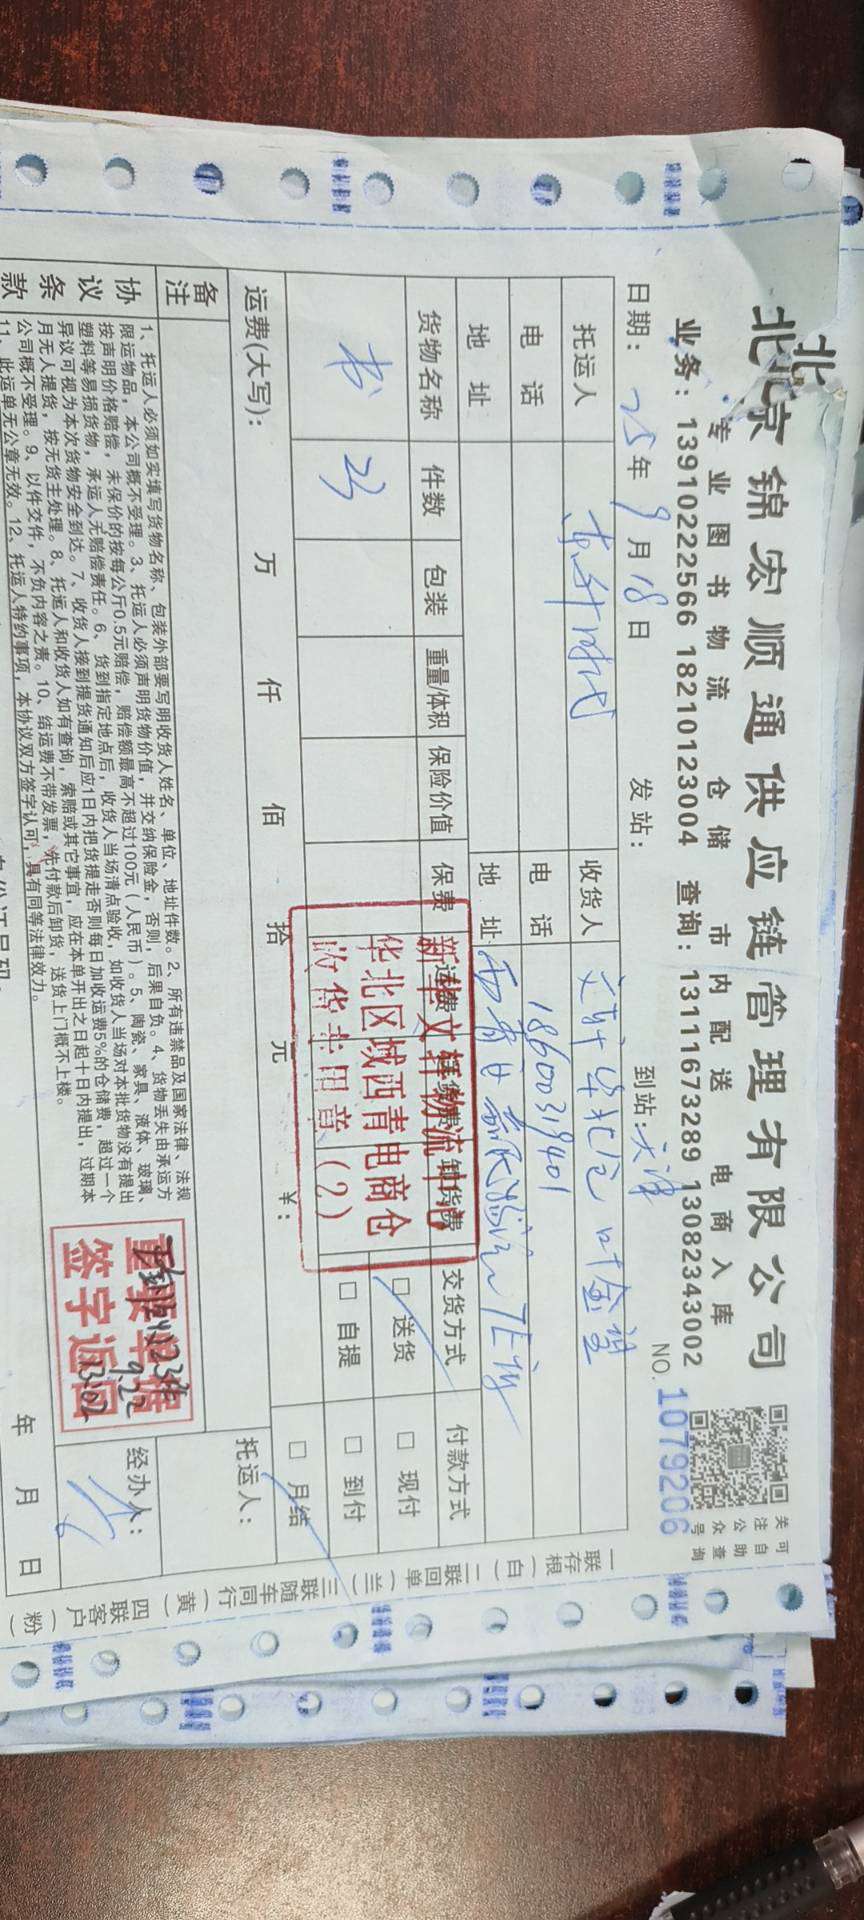 北京锦宏顺通供应链管理有限公司
专业图书物流 仓储 市内配送 电商入库
业务：13910222566 18210123004 查询：13111673289 13082343002
关注公众号
可自助查询
日期：25年9月18日 发站： 到站：天津 NO. 1079206
托运人 东升时代 收货人 文轩华北仓 叶金望
电话 电话 18600319401
地址 地址 西青
货物名称 件数 包装 重量/体积 保险价值 保费 运费 送货费 卸货费 交货方式 付款方式
书 23 □ 送货 □ 现付
□ 自提 □ 到付
运费(大写)： 万 仟 佰 拾 元 ¥： □ 月结
新华文轩物流中心
华北区域西青电商仓
收货专用章（2）
备注
托运人：
协议条款
1、托运人必须如实填写货物名称、包装外部要写明收货人姓名、单位、地址件数。2、所有违禁品及国家法律、法规
限运物品，本公司概不受理。3、托运人必须声明货物价值，并交纳保险金，否则，后果自负。4、货物丢失由承运方
按声明价格赔偿，未保价的按每公斤0.5元赔偿，赔偿额最高不超过100元（人民币）。5、陶瓷、家具、液体、玻璃、
塑料等易损货物，承运人无赔偿责任。6、货到指定地点后，收货人当场清点验收，如收货人当场对本批货物没有提出
异议可视为本次货物安全到达。7、收货人接到提货通知后应1日内把货提走否则每日加收运费5%的仓储费，超过一个
月无人提货，按无货主处理。8、托运人和收货人如有查询，索赔或其它事宜，应在本单开出之日起十日内提出，过期本
公司概不受理。9、以件交件，不负内容之责。10、结运费不带发票，先付款后卸货，送货上门概不上楼。
11、此运单无公章无效。12、托运人特约事项，本协议双方签字认可，具有同等法律效力。
重要单据
签字返回
23件
9.22
13:02
经办人：
年 月 日
一联存根（白）二联回单（兰）三联随车同行（黄）四联客户（粉）